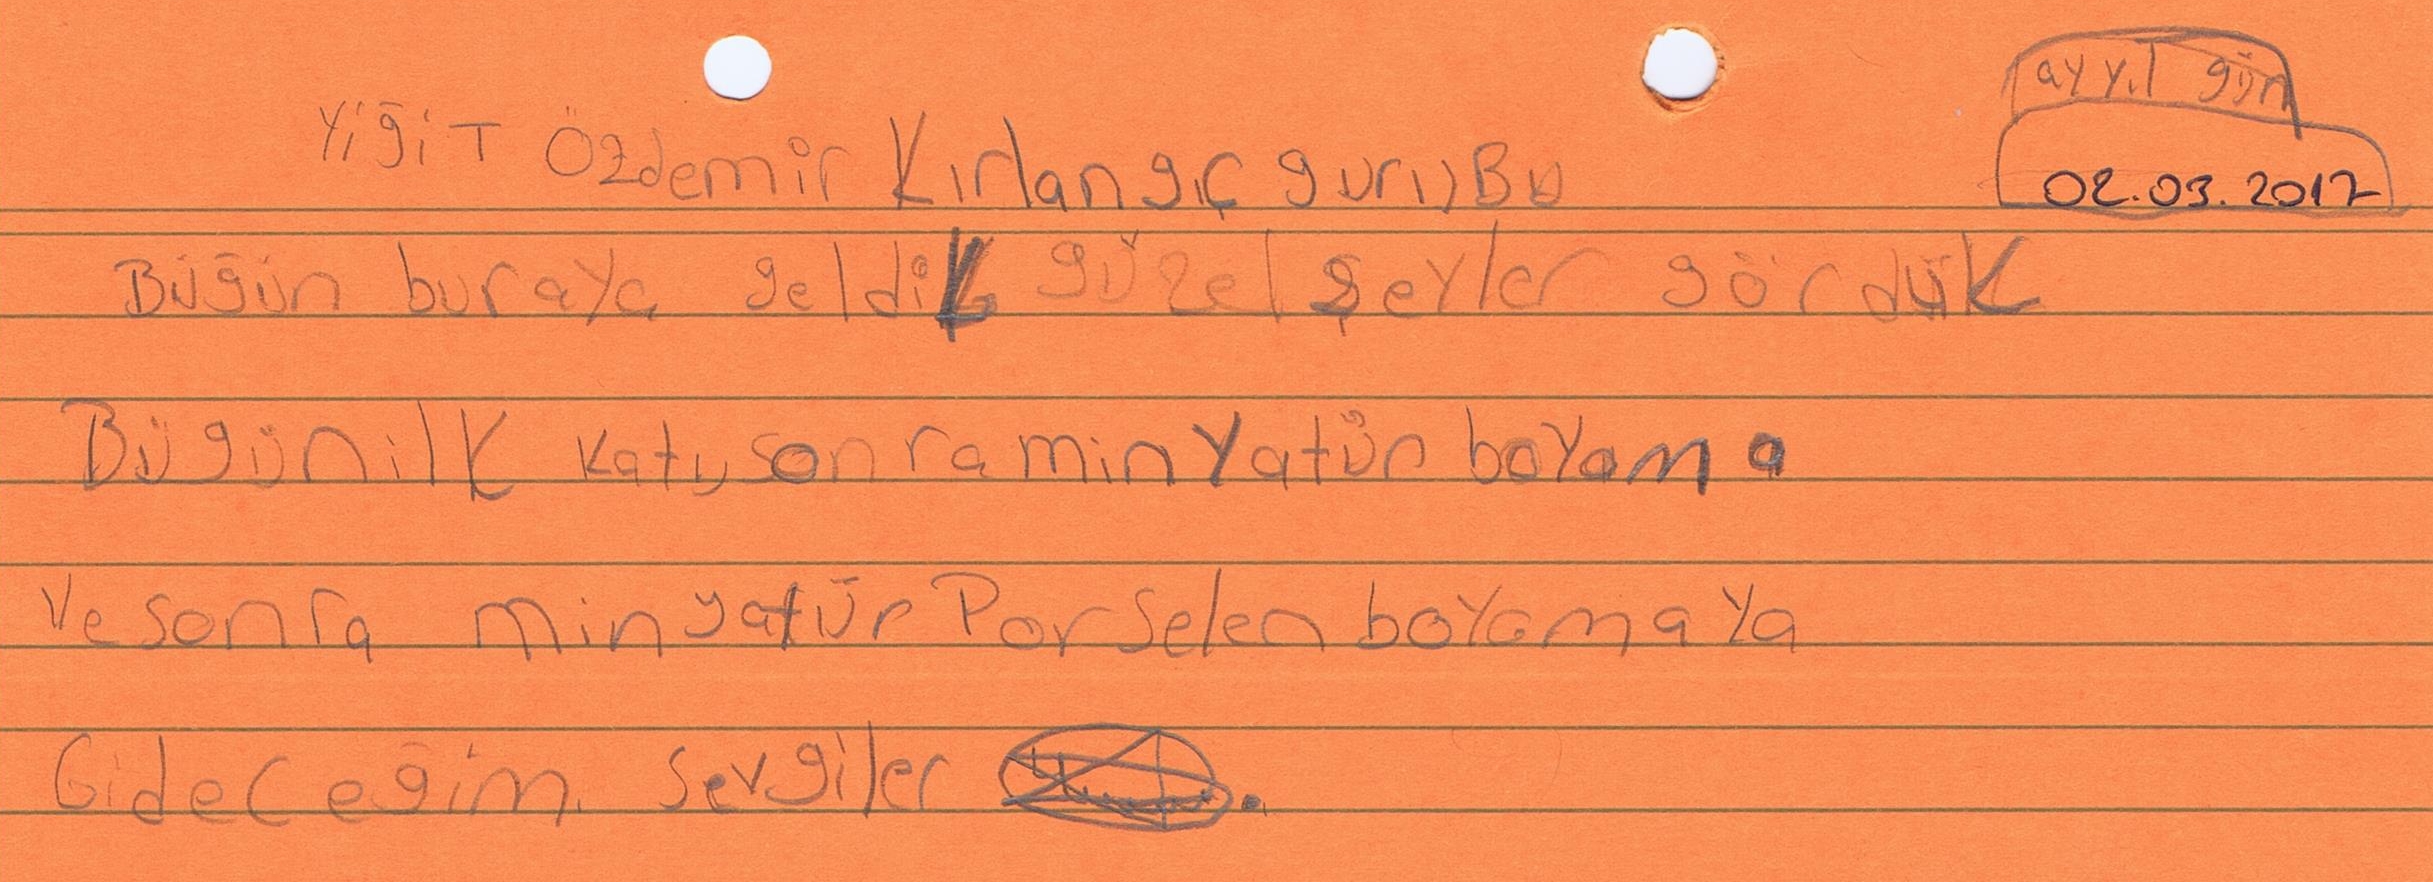 ay yıl gün
Yiğit Özdemir Kırlangıç guruBu
02.03.2017
Büğün buraya geldik güzel şeyler gördük
Bügün ilk katy sonra minyatür boyama
Ve sonra minyatür Porselen boyamaya
Gideceğim. Sevgiler